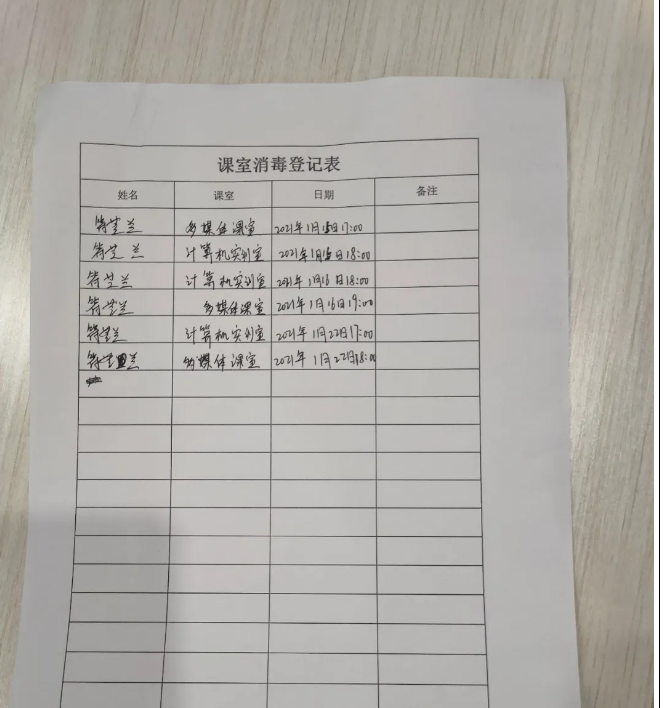 课室消毒登记表
姓名 课室 日期 备注
兰 多媒体课室 2021年1月15日17:00
兰 计算机实训室 2021年1月15日18:00
兰 计算机实训室 2021年1月16日18:00
兰 多媒体课室 2021年1月16日19:00
兰 计算机实训室 2021年1月22日17:00
兰 多媒体课室 2021年1月22日18:00